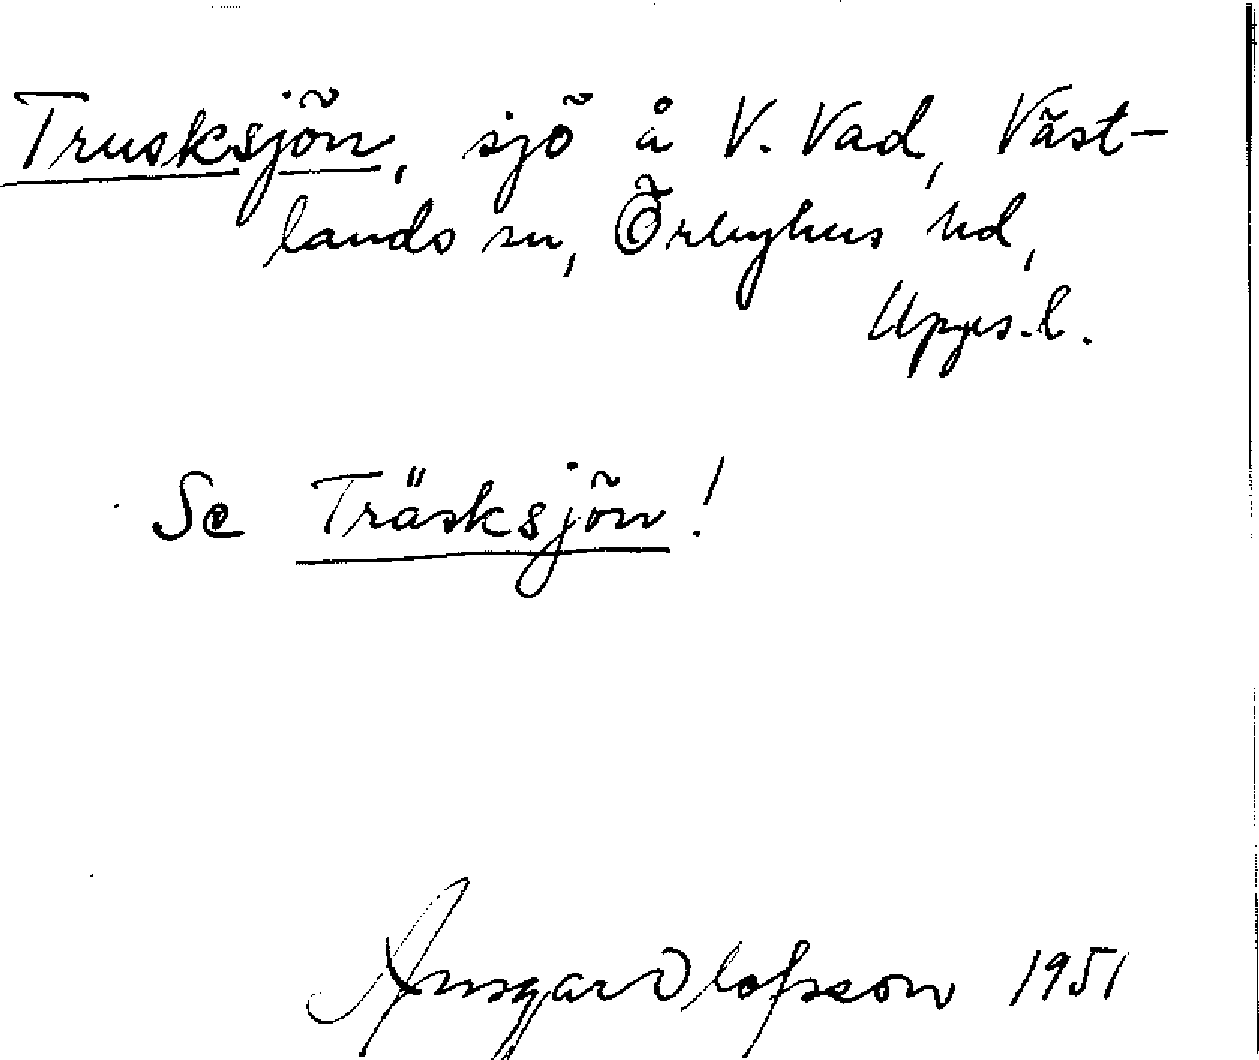 Trusksjön, sjö å V. Vad, Väst-
lands sn, Örbyhus hd,
Upps.l.
Se Träsksjön!
Ansgar Olofsson 1951